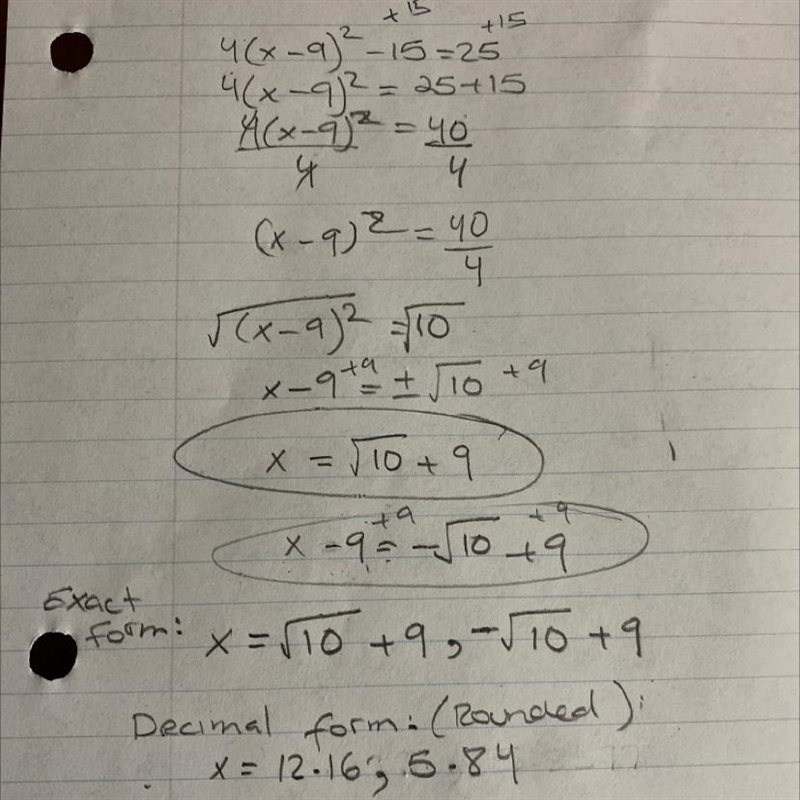 +15 +15
4(x-9)² - 15 = 25
4(x-9)² = 25+15
4(x-9)²/4 = 40/4
(x-9)² = 40/4
√(x-9)² = √10
x-9 +9 = ±√10 +9
x = √10 + 9
+9 +9
x - 9 = -√10 + 9
Exact
form: x = √10 + 9, -√10 + 9
Decimal form: (Rounded):
x = 12.16; 5.84